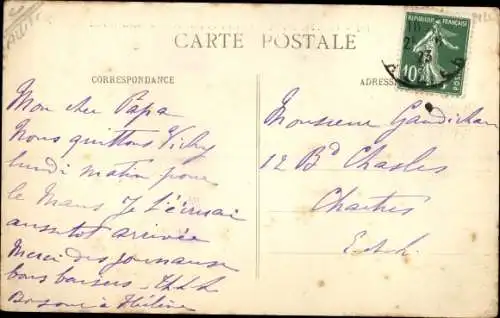 CARTE POSTALE
CORRESPONDANCE
Mon cher Papa
Nous quittons Vichy
lundi matin pour
le Mans Je t'écrirai
aussitot arrivée
Merci des journaux
bons baisers
Bonjour à Hélène
ADRESSE
Monsieur Gaudichau
12 Bd Chasles
Chartres
E-et-L
REPUBLIQUE FRANÇAISE
10
POSTES